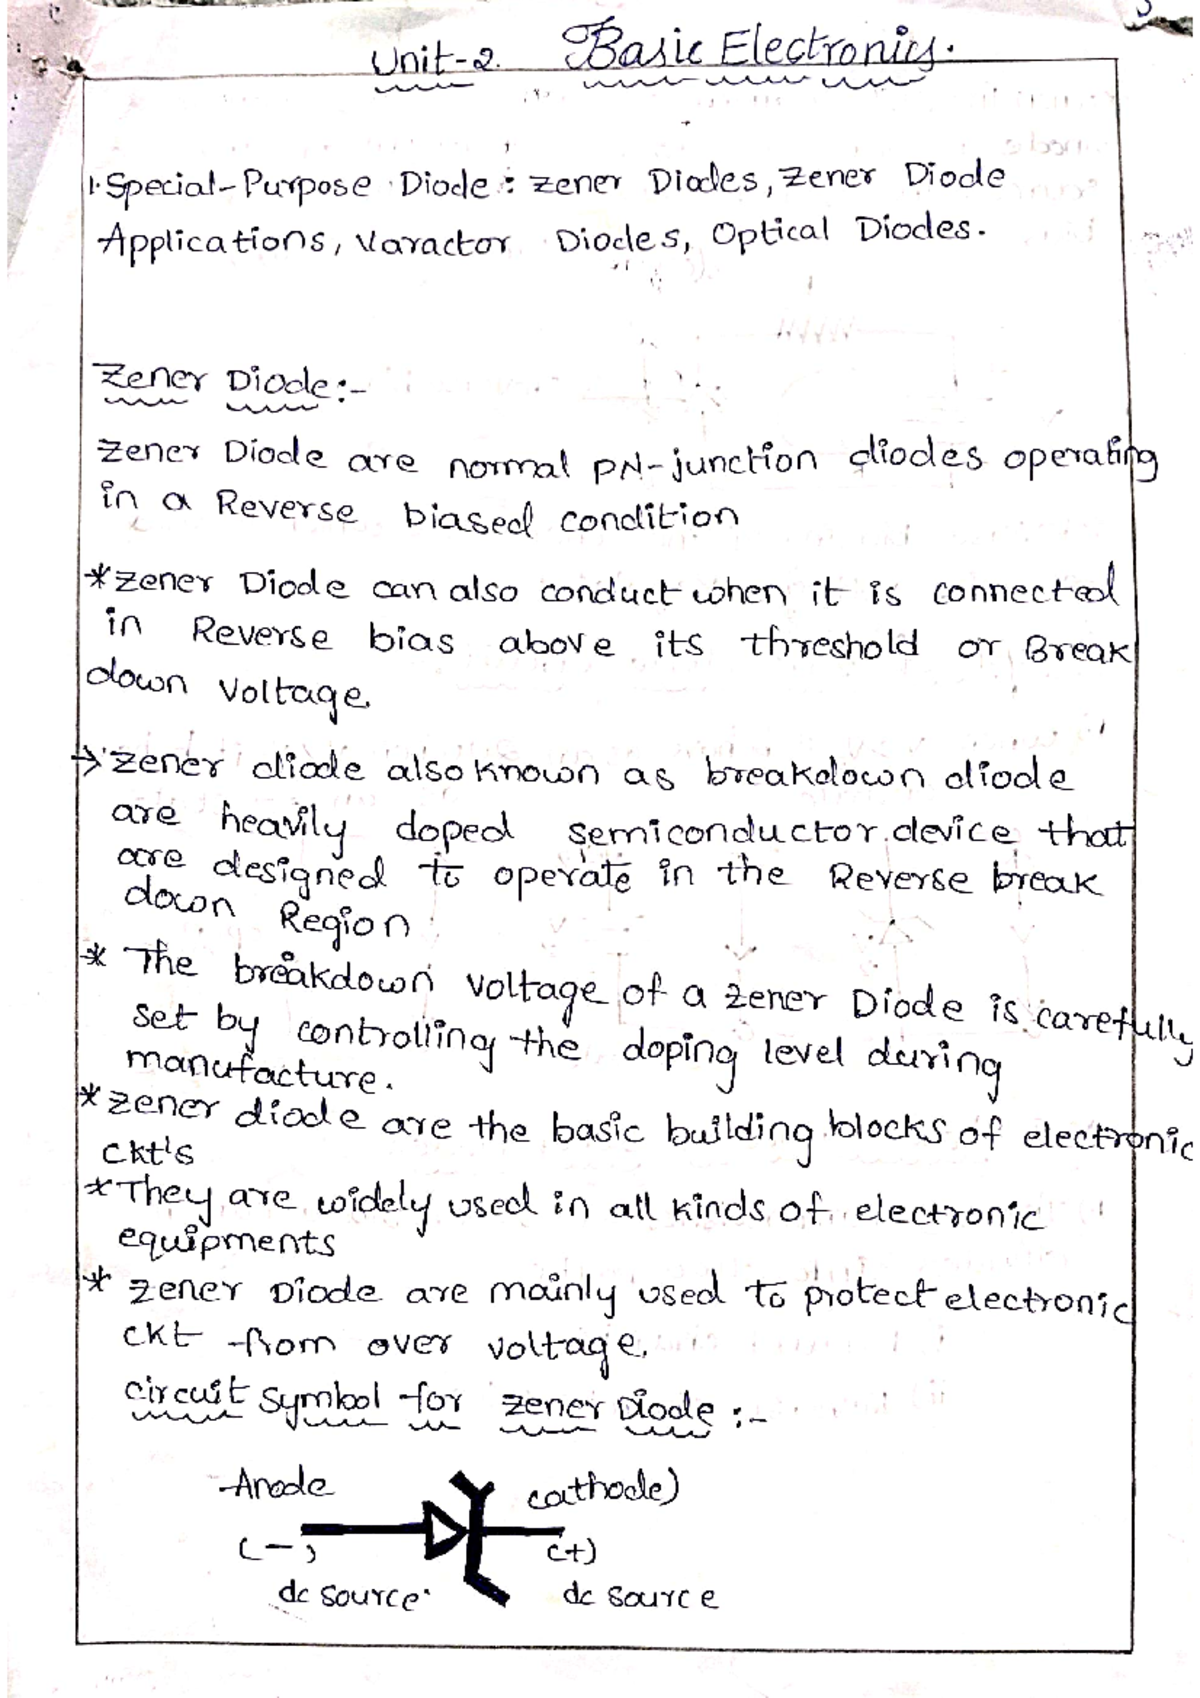 Unit-2. Basic Electronics.
1. Special-Purpose Diode: Zener Diodes, Zener Diode
Applications, Varactor Diodes, Optical Diodes.
Zener Diode:-
Zener Diode are normal PN-junction diodes operating
in a Reverse biased condition
*Zener Diode can also conduct when it is connected
in Reverse bias above its threshold or Break
down Voltage.
→ Zener diode also known as breakdown diode
are heavily doped semiconductor device that
are designed to operate in the Reverse break
down Region
* The breakdown voltage of a Zener Diode is carefully
set by controlling the doping level during
manufacture.
* Zener diode are the basic building blocks of electronic
ckt's
* They are widely used in all kinds of electronic
equipments
* Zener Diode are mainly used to protect electronic
ckt from over voltage.
Circuit Symbol for Zener Diode :-
Anode cathode)
(-) (+)
dc source. dc source